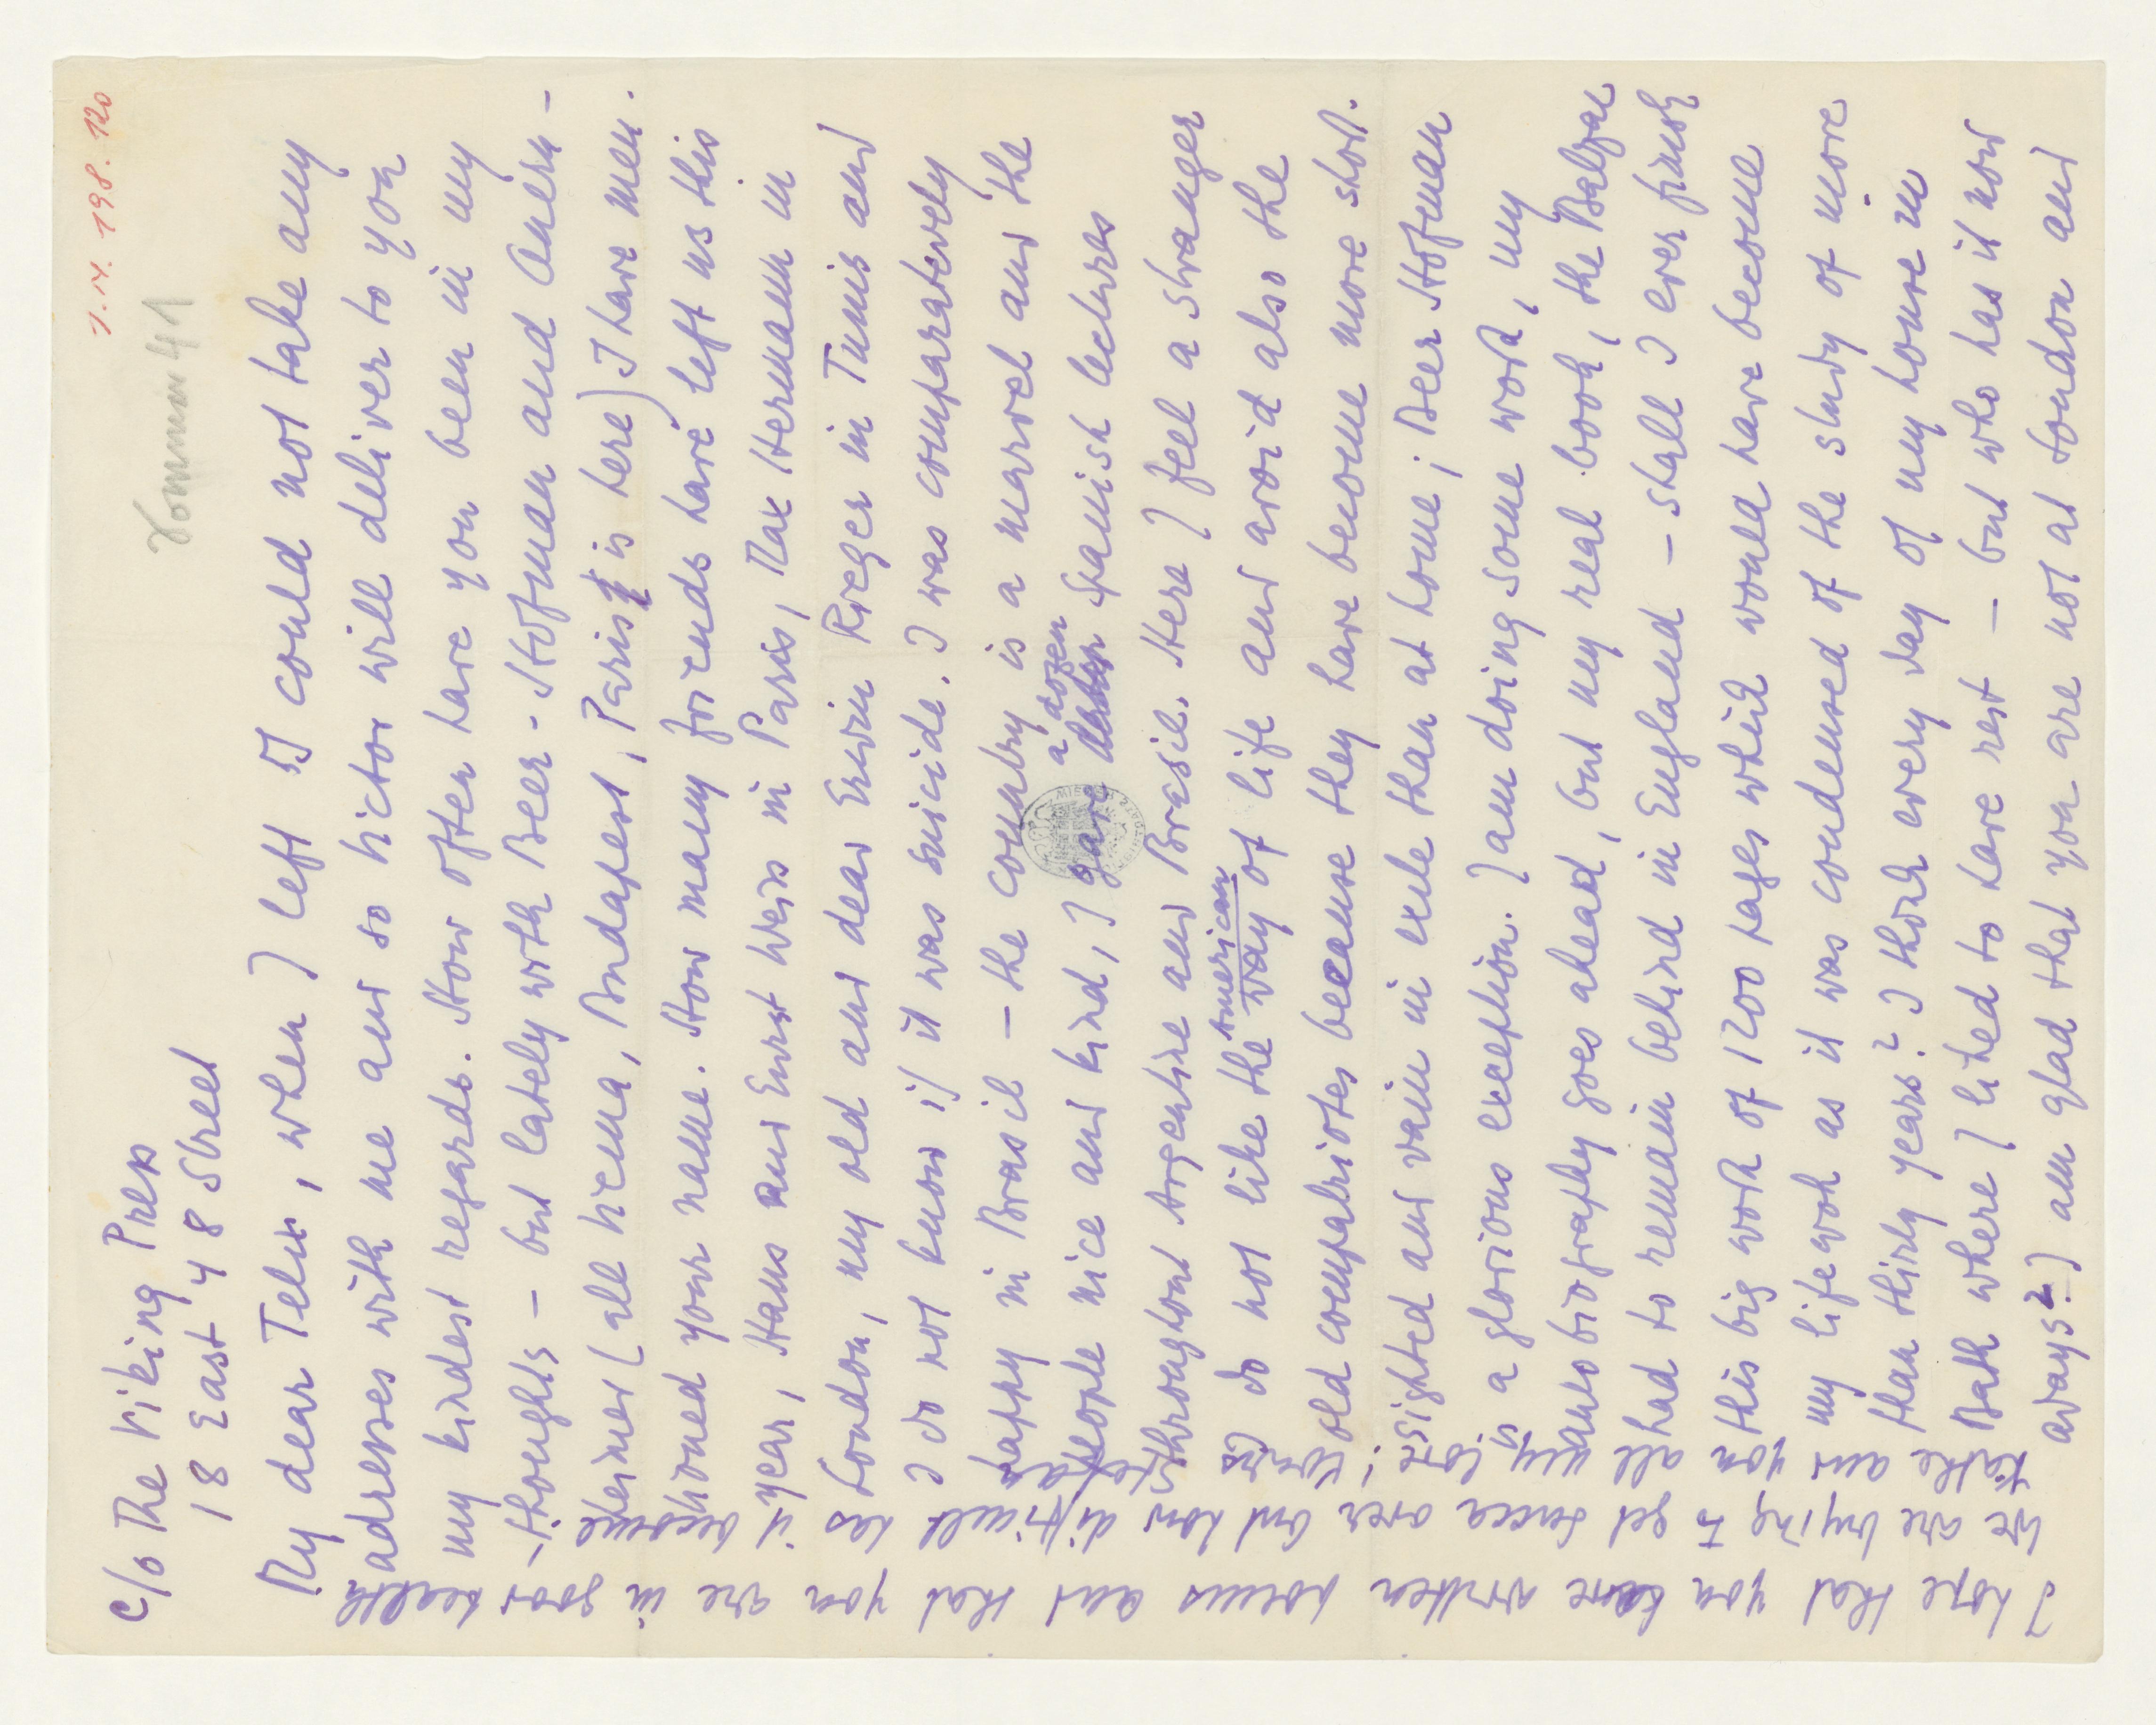 1.N. 198.120
Sommer 41
c/o The Viking Press
18 East 48 Street
My dear , when I left I could not take any
adresses with me and so Victor will deliver to you
my kindest regards. How often have you been in my
thoughts – but lately with Beer-Hofman and Auern-
heimer (all Vienna, Budapest, Paris is here) I have men-
tioned your name. How many friends have left us this
year, Hans and Ernst Weiss in Paris, Max Hermann in
London, my old and dear Erwin Rieger in Tunis and
I do not know if it was suicide. I was comparatively
happy in Brasil – the country is a marvel and the
people nice and kind, I gave a dozen Spanish lectures
throughout Argentine and Brasil. Here I feel a stranger
I do not like the American way of life and avoid also the
old compatriotes because they have become more short-
sighted and vain in exile than at home; Beer Hofman
is a glorious exception. I am doing some work, my
autobiografy goes ahead, but my real book, the Balzac
had to remain behind in England – shall I ever finish
this big work of 1200 pages which would have become
my lifework as it was condensed of the study of more
than thirty years? I think every day of my house in
Bath where I liked to have rest – but who has it now
adays? I am glad that you are not at London and
I hope that you have written poems and that you are in good health